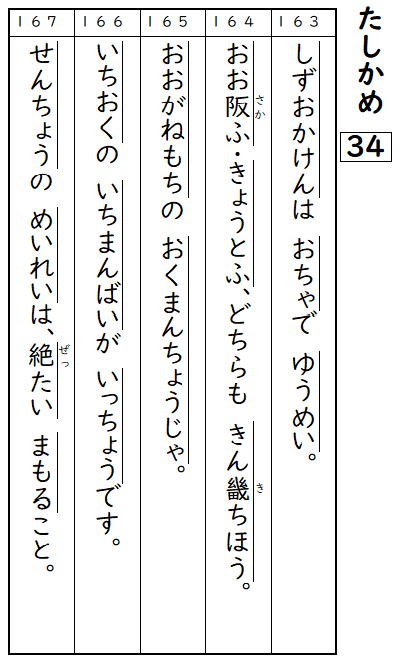 たしかめ
34
163
しずおかけんは おちゃで ゆうめい。
164
おお阪ふ・きょうとふ、どちらも きん畿ちほう。
さか
き
165
おおがねもちの おくまんちょうじゃ。
166
いちおくの いちまんばいが いっちょうです。
167
せんちょうの めいれいは、絶たい まもること。
ぜっ